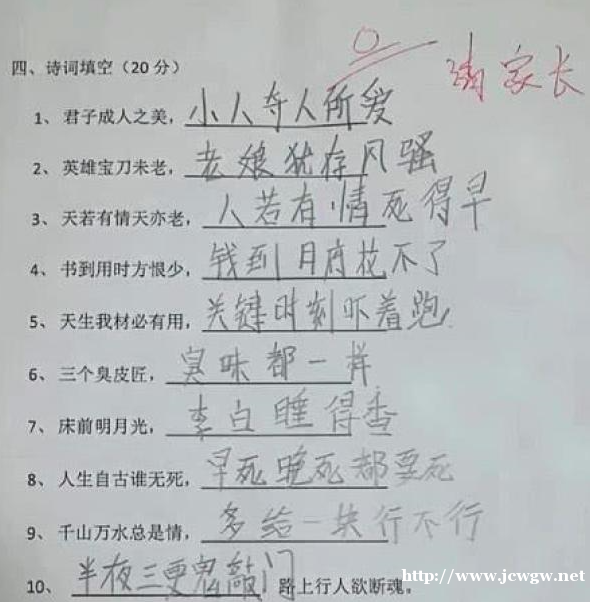 四、诗词填空（20 分） 0 请家长
1、君子成人之美，小人夺人所爱
2、英雄宝刀未老，老娘犹存风骚
3、天若有情天亦老，人若有情死得早
4、书到用时方恨少，钱到月府花不了
5、天生我材必有用，关键时刻吓着跑
6、三个臭皮匠，臭味都一样
7、床前明月光，李白睡得香
8、人生自古谁无死，早死晚死都要死
9、千山万水总是情，多给一块行不行
10、半夜三更鬼敲门 路上行人欲断魂。
http://www.jcwgw.net